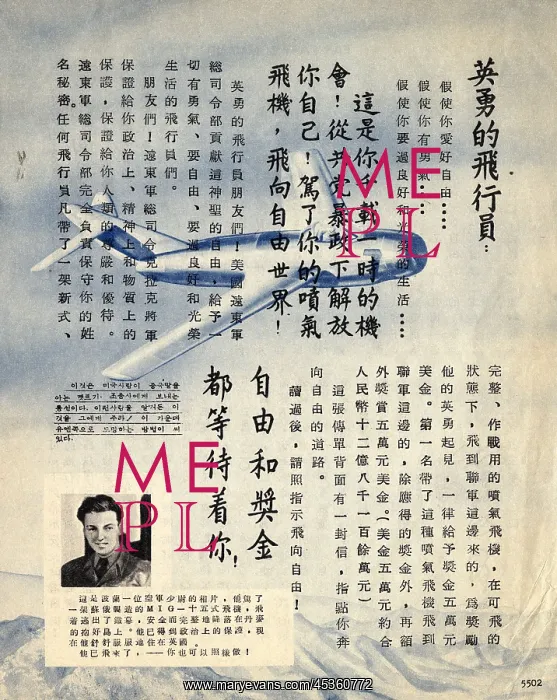 英勇的飛行員：
假使你愛好自由......
假使你有勇氣......
假使你要過良好和光榮的生活......
這是你千載一時的機
會！從共党暴政下解放
你自己！駕了你的噴氣
飛機，飛向自由世界！
英勇的飛行員朋友們！美國遠東軍
總司令部貢獻這神聖的自由，給予一
切有勇氣、要自由、要過良好和光榮
生活的飛行員們。
朋友們！遠東軍總司令克拉克將軍
保證給你政治上、精神上和物質上的
保證，保證給你人類的尊嚴和優待。
遠東軍總司令部完全負責保守你的姓
名秘密。任何飛行員凡帶了一架新式、
完整、作戰用的噴氣飛機，在可飛的
狀態下，飛到聯軍這邊來的，為獎勵
他的英勇起見，一律給予獎金五萬元
美金。第一名帶了這種噴氣飛機飛到
聯軍這邊的，除應得的獎金外，再額
外獎賞五萬元美金。（美金五萬元約合
人民幣十二億八千一百餘萬元）
這張傳單背面有一封信，指點你奔
向自由的道路。
讀過後，請照指示飛向自由！
自由和獎金
都等待着你！
이것은 미국사람이 중국말을
아는
보내는
이런사람을
이
것을 그에게
방법이 써
있다.
這是波蘭一位空軍少尉的相片，他駕了
一架蘇俄製造的MIG—十五式飛機，飛
着逃出了鐵幕，安全而完整地降落在丹麥
的抱好島上。他已得到政治上的保證，現
在他舒舒服服遠住在英國。
他已飛來了，——你也可以照樣做！
5502
ME
PL
ME
PL
www.maryevans.com/45360772